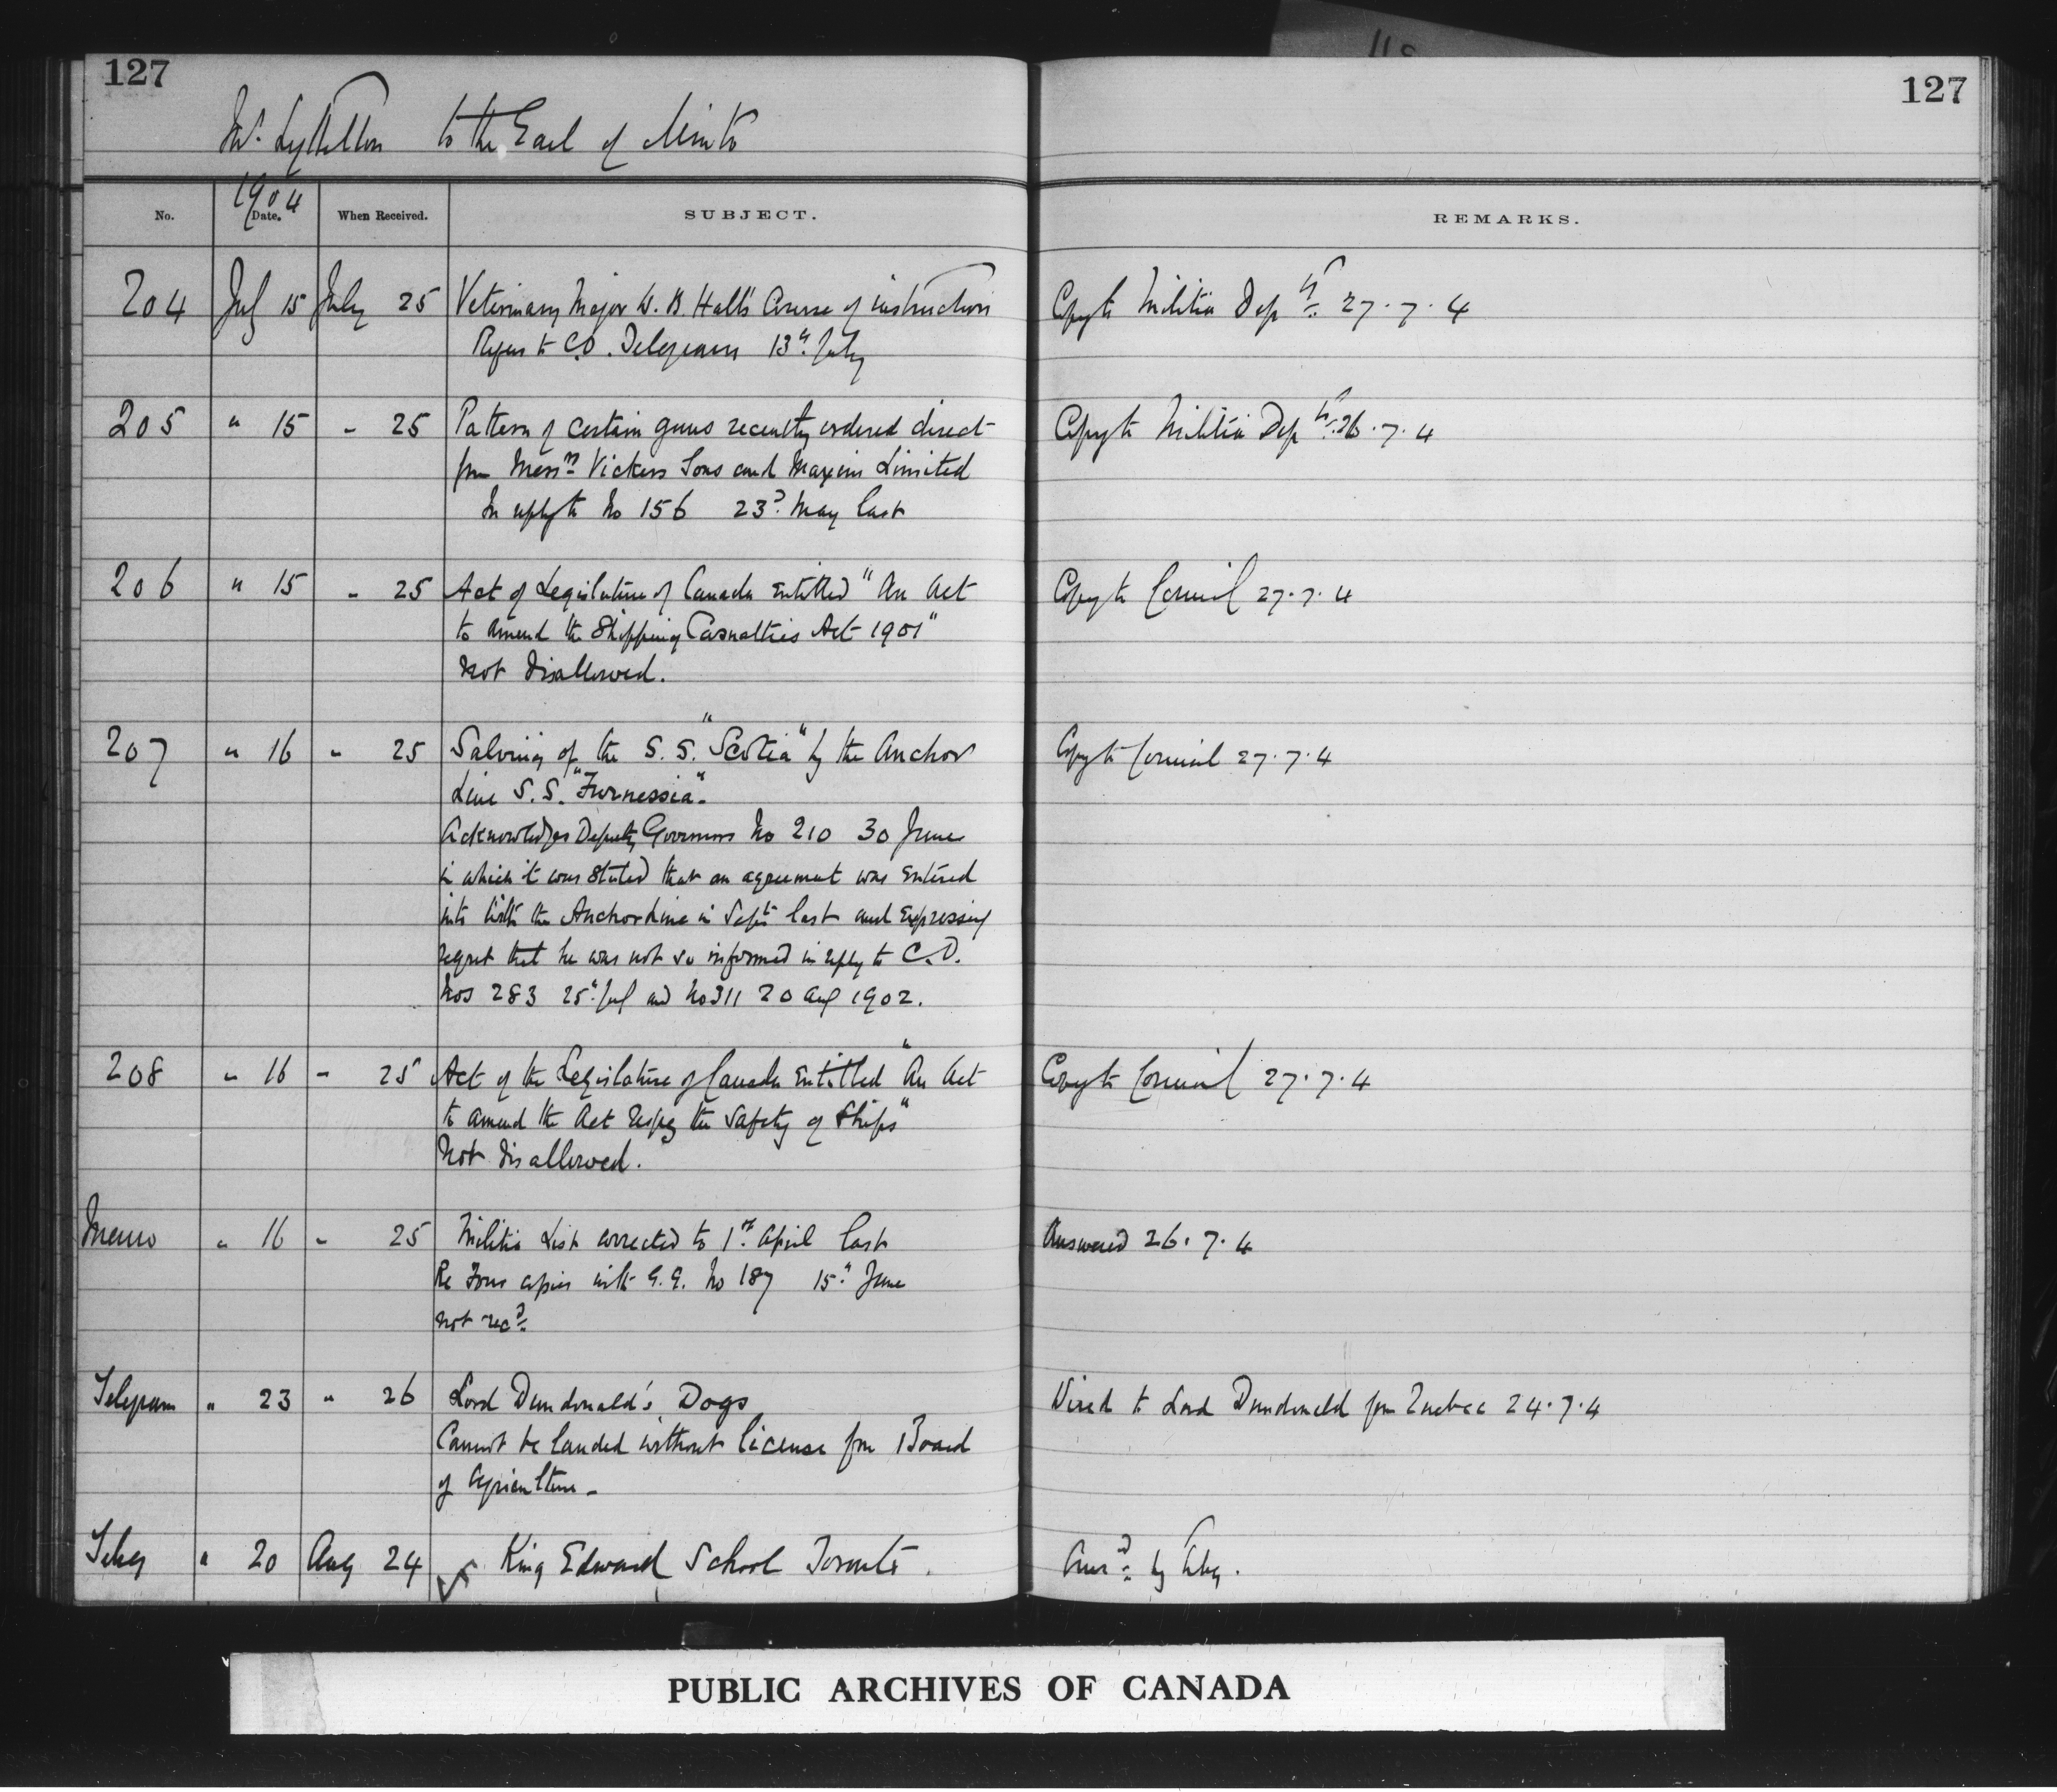 127
127
Mr. Lyttelton to the Earl of Minto
1904
No. Date. When Received. SUBJECT. REMARKS.
204 July 15 July 25 Veterinary Major W. B. Hall's Course of instruction Copy to Militia Dept 27.7.4
Refers to C.O. Telegram 13th July
205 " 15 " 25 Pattern of certain guns recently ordered direct Copy to Militia Dept 26.7.4
from Messrs Vickers Sons and Maxim Limited
In reply to No 156 23d May last
206 " 15 " 25 Act of Legislature of Canada Entitled "An Act Copy to Council 27.7.4
to Amend the Shipping Casualties Act 1901"
Not disallowed.
207 " 16 " 25 Salving of the S.S. "Scotia" by the Anchor Copy to Council 27.7.4
Line S.S. "Furnessia".
Acknowledges Deputy Governors No 210 30 June
in which it was stated that an agreement was entered
into with the Anchor Line in Sept last and expressing
regret that he was not so informed in reply to C.O.
Nos 283 25th July and No 311 20 Aug 1902.
208 " 16 " 25 Act of the Legislature of Canada Entitled "An Act Copy to Council 27.7.4
to amend the Act Respg the Safety of Ships"
Not disallowed.
Memo " 16 " 25 Militia List corrected to 1st April last Answered 26.7.4
Re Four copies with G.G. No 187 15th June
not recd.
Telegram " 23 " 26 Lord Dundonald's Dogs Wired to Lord Dundonald from Quebec 24.7.4
Cannot be landed without license from Board
of Agriculture -
Teleg " 20 Aug 24 King Edward School Toronto. Ansd by teleg.
PUBLIC ARCHIVES OF CANADA